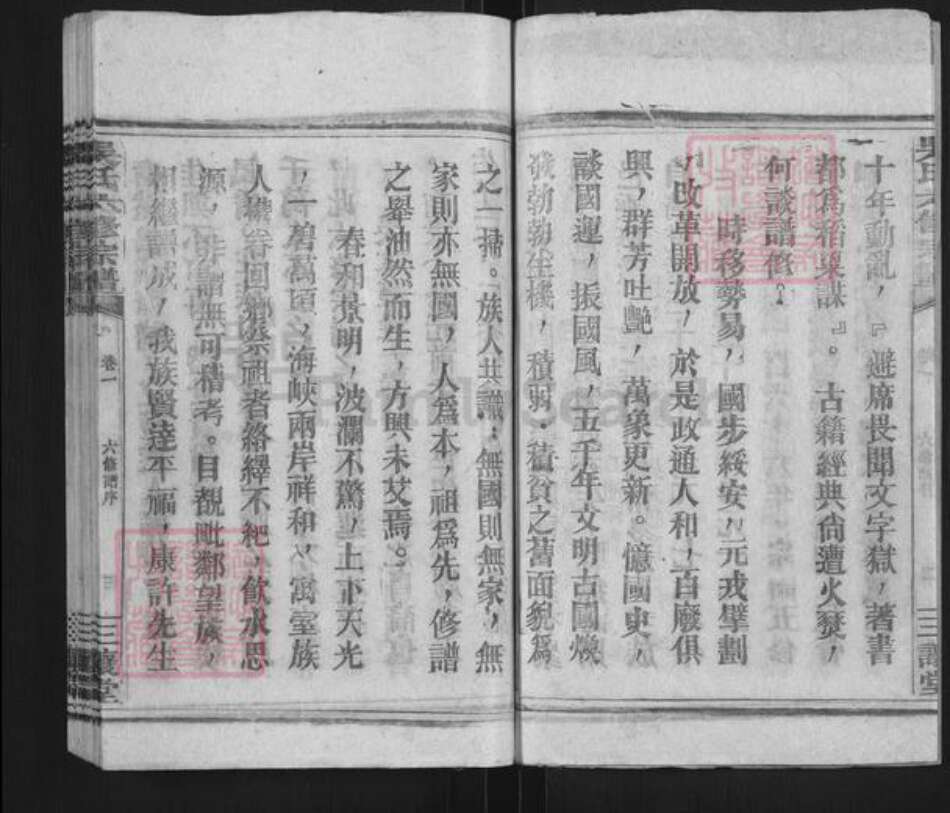 十年動亂，『避席畏聞文字獄，著書
都爲稻粱謀』。古籍經典尙遭火燹，
何談譜修？
時移勢易，國步綏安，元戎擘劃
，改革開放，於是政通人和，百廢俱
興，群芳吐艷，萬象更新。憶國史，
談國運，振國風，五千年文明古國煥
發勃勃生機，積弱·積貧之舊面貌爲
之一掃。族人共識：無國則無家，無
家則亦無國，人爲本，祖爲先，修譜
之舉油然而生，方興未艾焉。
春和景明，波瀾不驚，上下天光
，一碧萬頃，海峽兩岸祥和，寓臺族
人攜眷回鄉祭祖者絡繹不絕，飲水思
源，非譜無可稽考。目覩毗鄰望族，
相繼譜成，我族賢達平福，康許先生
吳氏六修宗譜
卷一
六修譜序
三讓堂